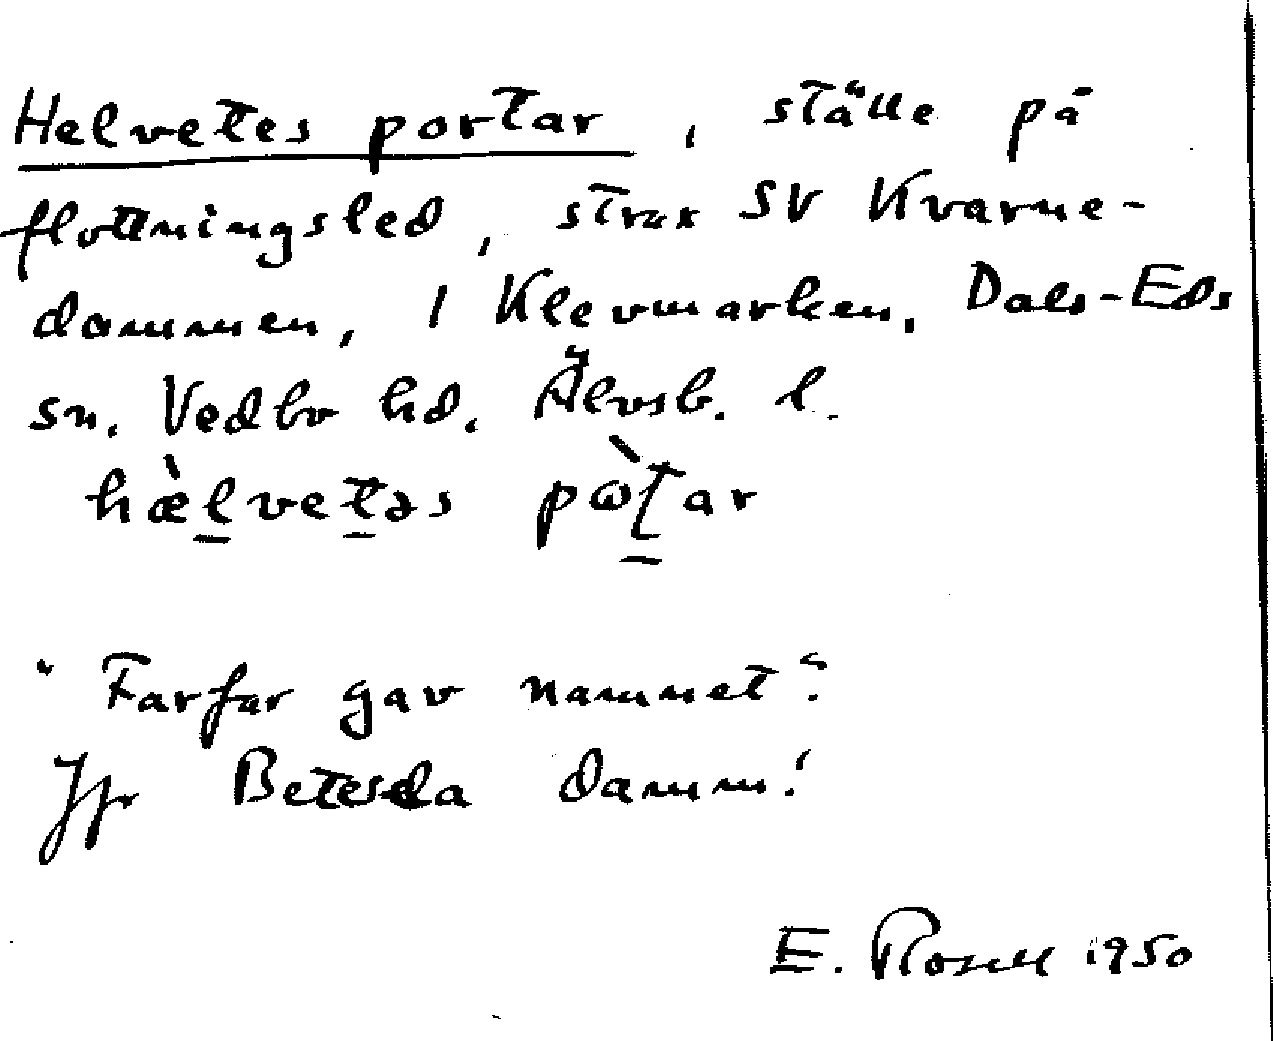 Helvetes portar, ställe på
flottningsled, strax SV Kvarne-
dammen, i Klevmarken, Dals-Eds
sn. Vedbo hd. Älvsb. l.
hæ̀l̲vet̲əs pɷ̀ʈ̲ar
"Farfar gav namnet".
Jfr Betesda damm!
E. Rosell 1950